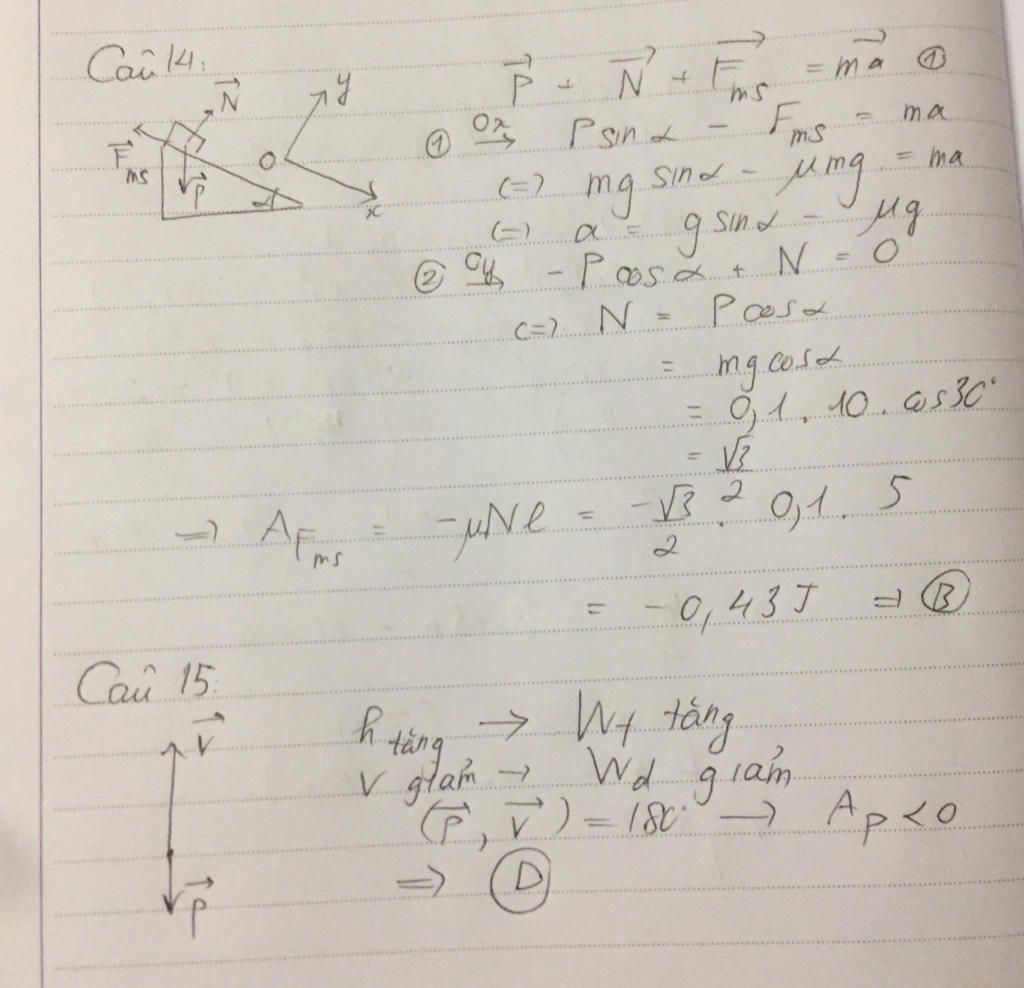 Câu 14:
P⃗ + N⃗ + F⃗ms = ma⃗ ①
N⃗ y
F⃗ms P⃗ α O x
① Ox→ Psinα - Fms = ma
(=) mg sinα - μmg = ma
(=) a = gsinα - μg
② Oy→ - Pcosα + N = 0
(=) N = Pcosα
= mgcosα
= 0,1 . 10 . cos30°
= √3/2
=> AFms = -μNl = -√3/2 . 0,1 . 5
= -0,43J => Ⓑ
Câu 15:
V⃗ h tăng → Wt tăng
v giảm → Wd giảm
(P⃗, V⃗) = 180° → Ap < 0
P⃗ => Ⓓ